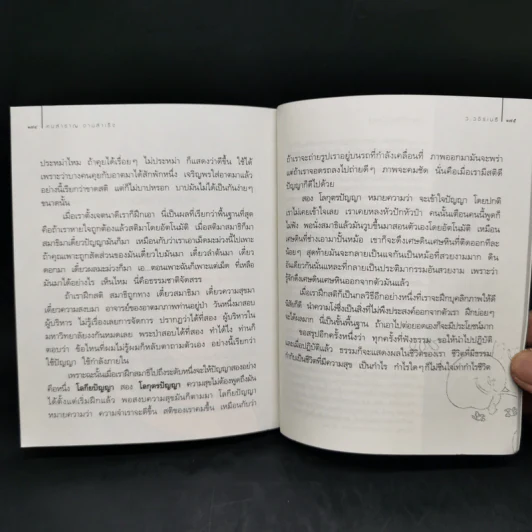 ๑๑๔ คนสำราญ งานสำเร็จ
ประหม่าไหม ถ้าคุยได้เรื่อยๆ ไม่ประหม่า ก็แสดงว่าดีขึ้น ใช้ได้
เพราะว่าบางคนคุยกับอาตมาได้สักพักหนึ่ง เจริญพรใส่อาตมาแล้ว
อย่างนี้เรียกว่าขาดสติ แต่ก็ไม่บาปหรอก บาปมันไม่ได้เป็นกันง่ายๆ
ขนาดนั้น
เมื่อเราตั้งเจตนาดีเราก็ฝึกเอา นี่เป็นผลที่เรียกว่าพื้นฐานที่สุด
คือถ้าเราหายใจถูกต้องแล้วสติมาโดยอัตโนมัติ เมื่อสติมาสมาธิก็มา
สมาธิมาเดี๋ยวปัญญามันก็มา เหมือนกับว่าเราเอาเม็ดมะม่วงนี้ไปเพาะ
ถ้าคุณเพาะถูกสัดส่วนของมันเดี๋ยวใบมันมา เดี๋ยวลำต้นมา เดี๋ยว
ดอกมา เดี๋ยวผลมะม่วงก็มา เอ...ตอนเพาะมันก็เพาะแค่เม็ด ที่เหลือ
มันมาได้อย่างไร เห็นไหม นี่คือธรรมชาติจัดสรร
ถ้าเราฝึกสติ สมาธิถูกทาง เดี๋ยวสมาธิมา เดี๋ยวความสุขมา
เดี๋ยวความสงบมา อาจารย์ของอาตมาภาพท่านอยู่ป่า วันหนึ่งมาสอบ
ผู้บริหาร ไม่รู้เรื่องเลยการจัดการ ปรากฏว่าได้ที่สอง ผู้บริหารใน
มหาวิทยาลัยงงกันหมดเลย พระป่าสอบได้ที่สอง ทำได้ไง ท่านก็
ตอบว่า ข้อไหนที่ผมไม่รู้ผมก็หลับตาถามตัวเอง อย่างนี้เรียกว่า
ใช้ปัญญา ใช้กำลังภายใน
เพราะฉะนั้นเมื่อเราฝึกสมาธิไปถึงระดับหนึ่งจะให้ปัญญาสองอย่าง
คือหนึ่ง โลกียปัญญา สอง โลกุตรปัญญา ความสุขไม่ต้องพูดถึงมัน
ได้ตั้งแต่เริ่มฝึกแล้ว พอสงบความสุขมันก็ตามมา โลกียปัญญา
หมายความว่า ความจำเราจะดีขึ้น สติของเราคมขึ้น เหมือนกับว่า
ว.วชิรเมธี ๑๑๕
ถ้าเราจะถ่ายรูปเราอยู่บนรถที่กำลังเคลื่อนที่ ภาพออกมามันจะพร่า
แต่ถ้าเราจอดรถลงไปถ่ายดีๆ ภาพจะคมชัด นั่นคือเมื่อเรามีสติดี
ปัญญาก็ดีไปด้วย
สอง โลกุตรปัญญา หมายความว่า จะเข้าใจปัญญา โดยปกติ
เราไม่เคยเข้าใจเลย เราเคยหลงหัวปักหัวปำ คนนั้นเตือนคนนี้พูดก็
ไม่ฟัง พอนั่งสมาธิแล้วมันวูบขึ้นมาสอนตัวเองโดยอัตโนมัติ เหมือน
เศษดินที่ช่างเอามาปั้นหม้อ เขาก็จะดึงเศษดินเศษหินที่ติดออกทีละ
น้อยๆ สุดท้ายมันจะกลายเป็นแจกันเป็นหม้อที่สวยงามมาก ดิน
อันเดียวกันนั่นแหละที่กลายเป็นประติมากรรมอันสวยงาม เพราะว่า
รู้จักดึงเศษดินเศษหินออกจากตัวมันแล้ว
เมื่อเราฝึกสติก็เป็นกลวิธีอีกอย่างหนึ่งที่เราจะฝึกบุคลิกภาพให้ดี
นิสัยก็ดี นำความโง่ซึ่งเป็นสิ่งที่ไม่พึงประสงค์ออกจากตัวเรา ฝึกบ่อยๆ
จะได้ผลมาก นี่เป็นพื้นฐาน ถ้าเอาไปต่อยอดเองก็จะมีประโยชน์มาก
ขอสรุปอีกครั้งหนึ่งว่า ทุกครั้งที่ฟังธรรม ขอให้นำไปปฏิบัติ
และเมื่อปฏิบัติแล้ว ธรรมก็จะแสดงผลในชีวิตของเรา ชีวิตที่มีธรรม
กำกับเป็นชีวิตที่มีความสุข เป็นกำไร กำไรใดๆ ก็ไม่ชื่นใจเท่ากำไรชีวิต